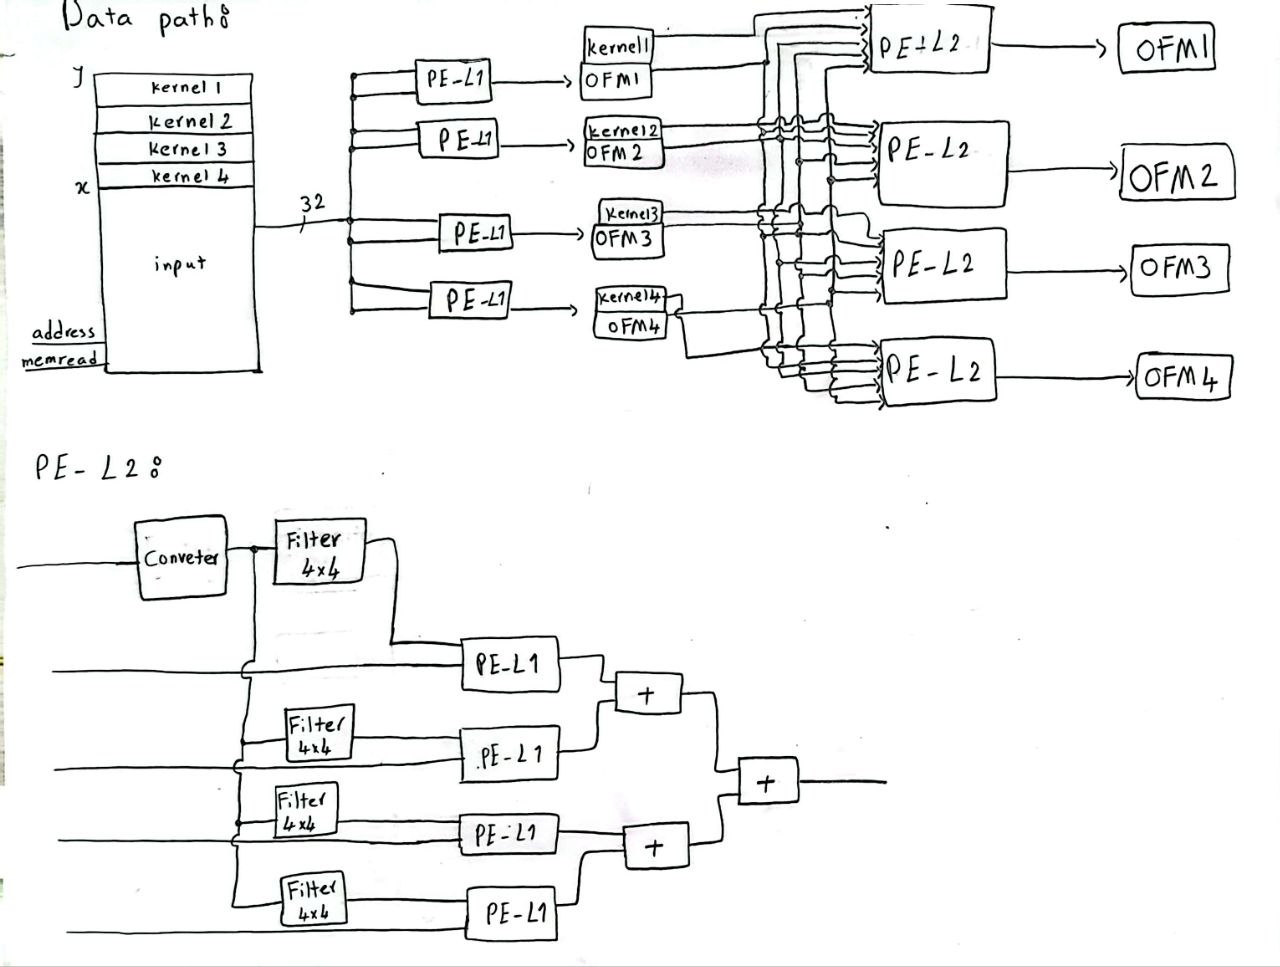 Data path:
y
kernel 1
kernel 2
kernel 3
kernel 4
x
input
address
memread
32
PE-L1
PE-L1
PE-L1
PE-L1
kernel1
OFM1
kernel2
OFM2
kernel3
OFM3
kernel4
OFM4
PE-L2
PE-L2
PE-L2
PE-L2
OFM1
OFM2
OFM3
OFM4
PE-L2:
Conveter
Filter
4x4
PE-L1
Filter
4x4
PE-L1
Filter
4x4
PE-L1
Filter
4x4
PE-L1
+
+
+